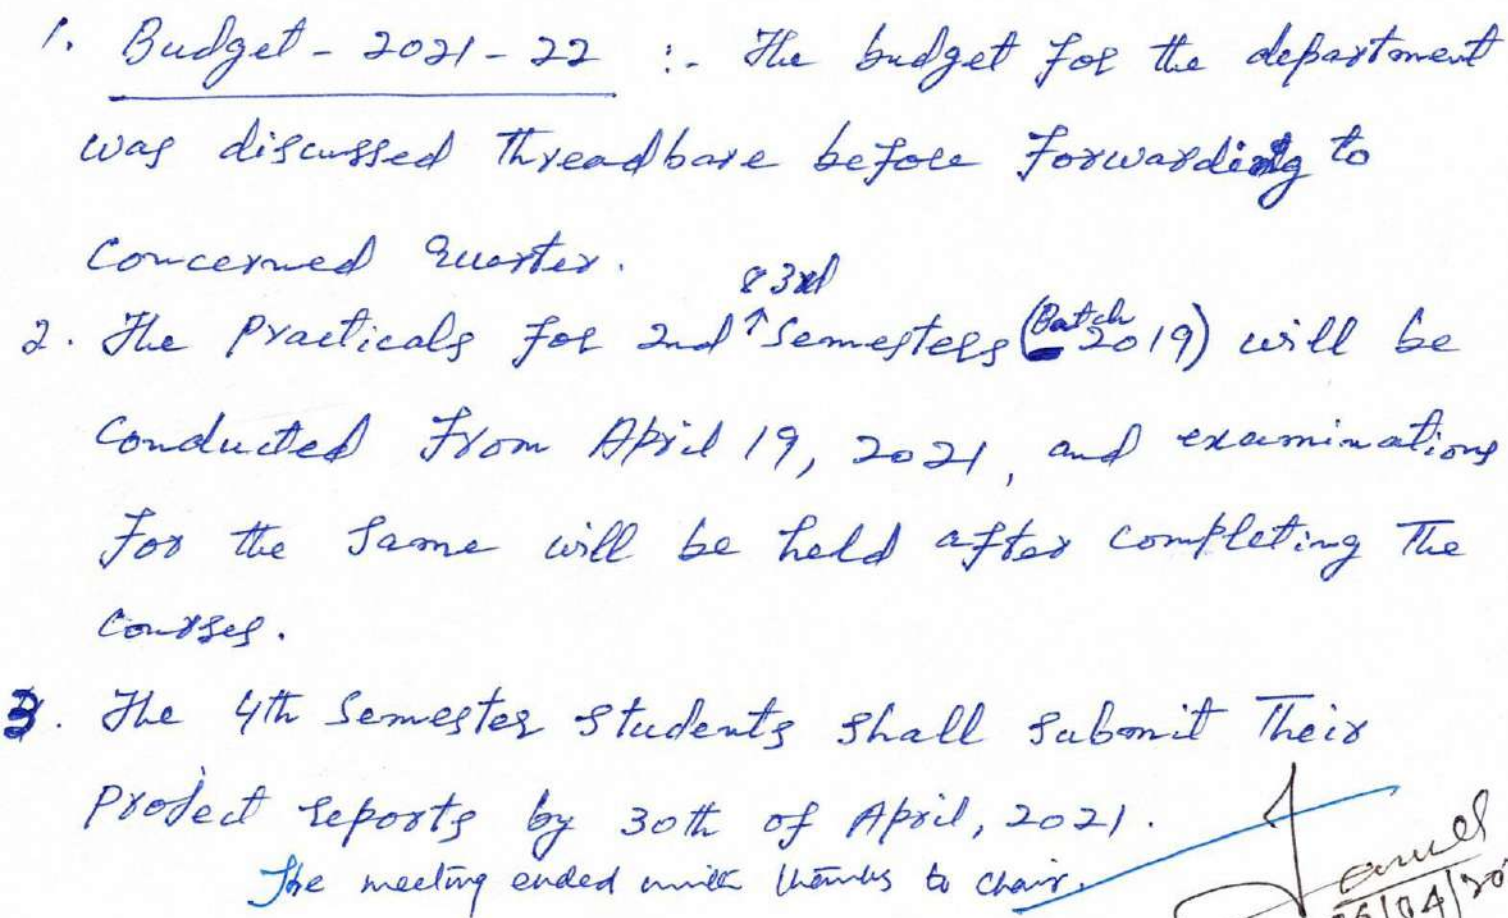 1. Budget - 2021 - 22 :- The budget for the department
was discussed threadbare before forwarding to
concerned quarter.
& 3rd
2. The Practicals for 2nd ↑ Semesters (Batch 2019) will be
conducted from April 19, 2021, and examinations
for the same will be held after completing the
courses.
3. The 4th Semester students shall submit their
project reports by 30th of April, 2021.
The meeting ended with thanks to chair.